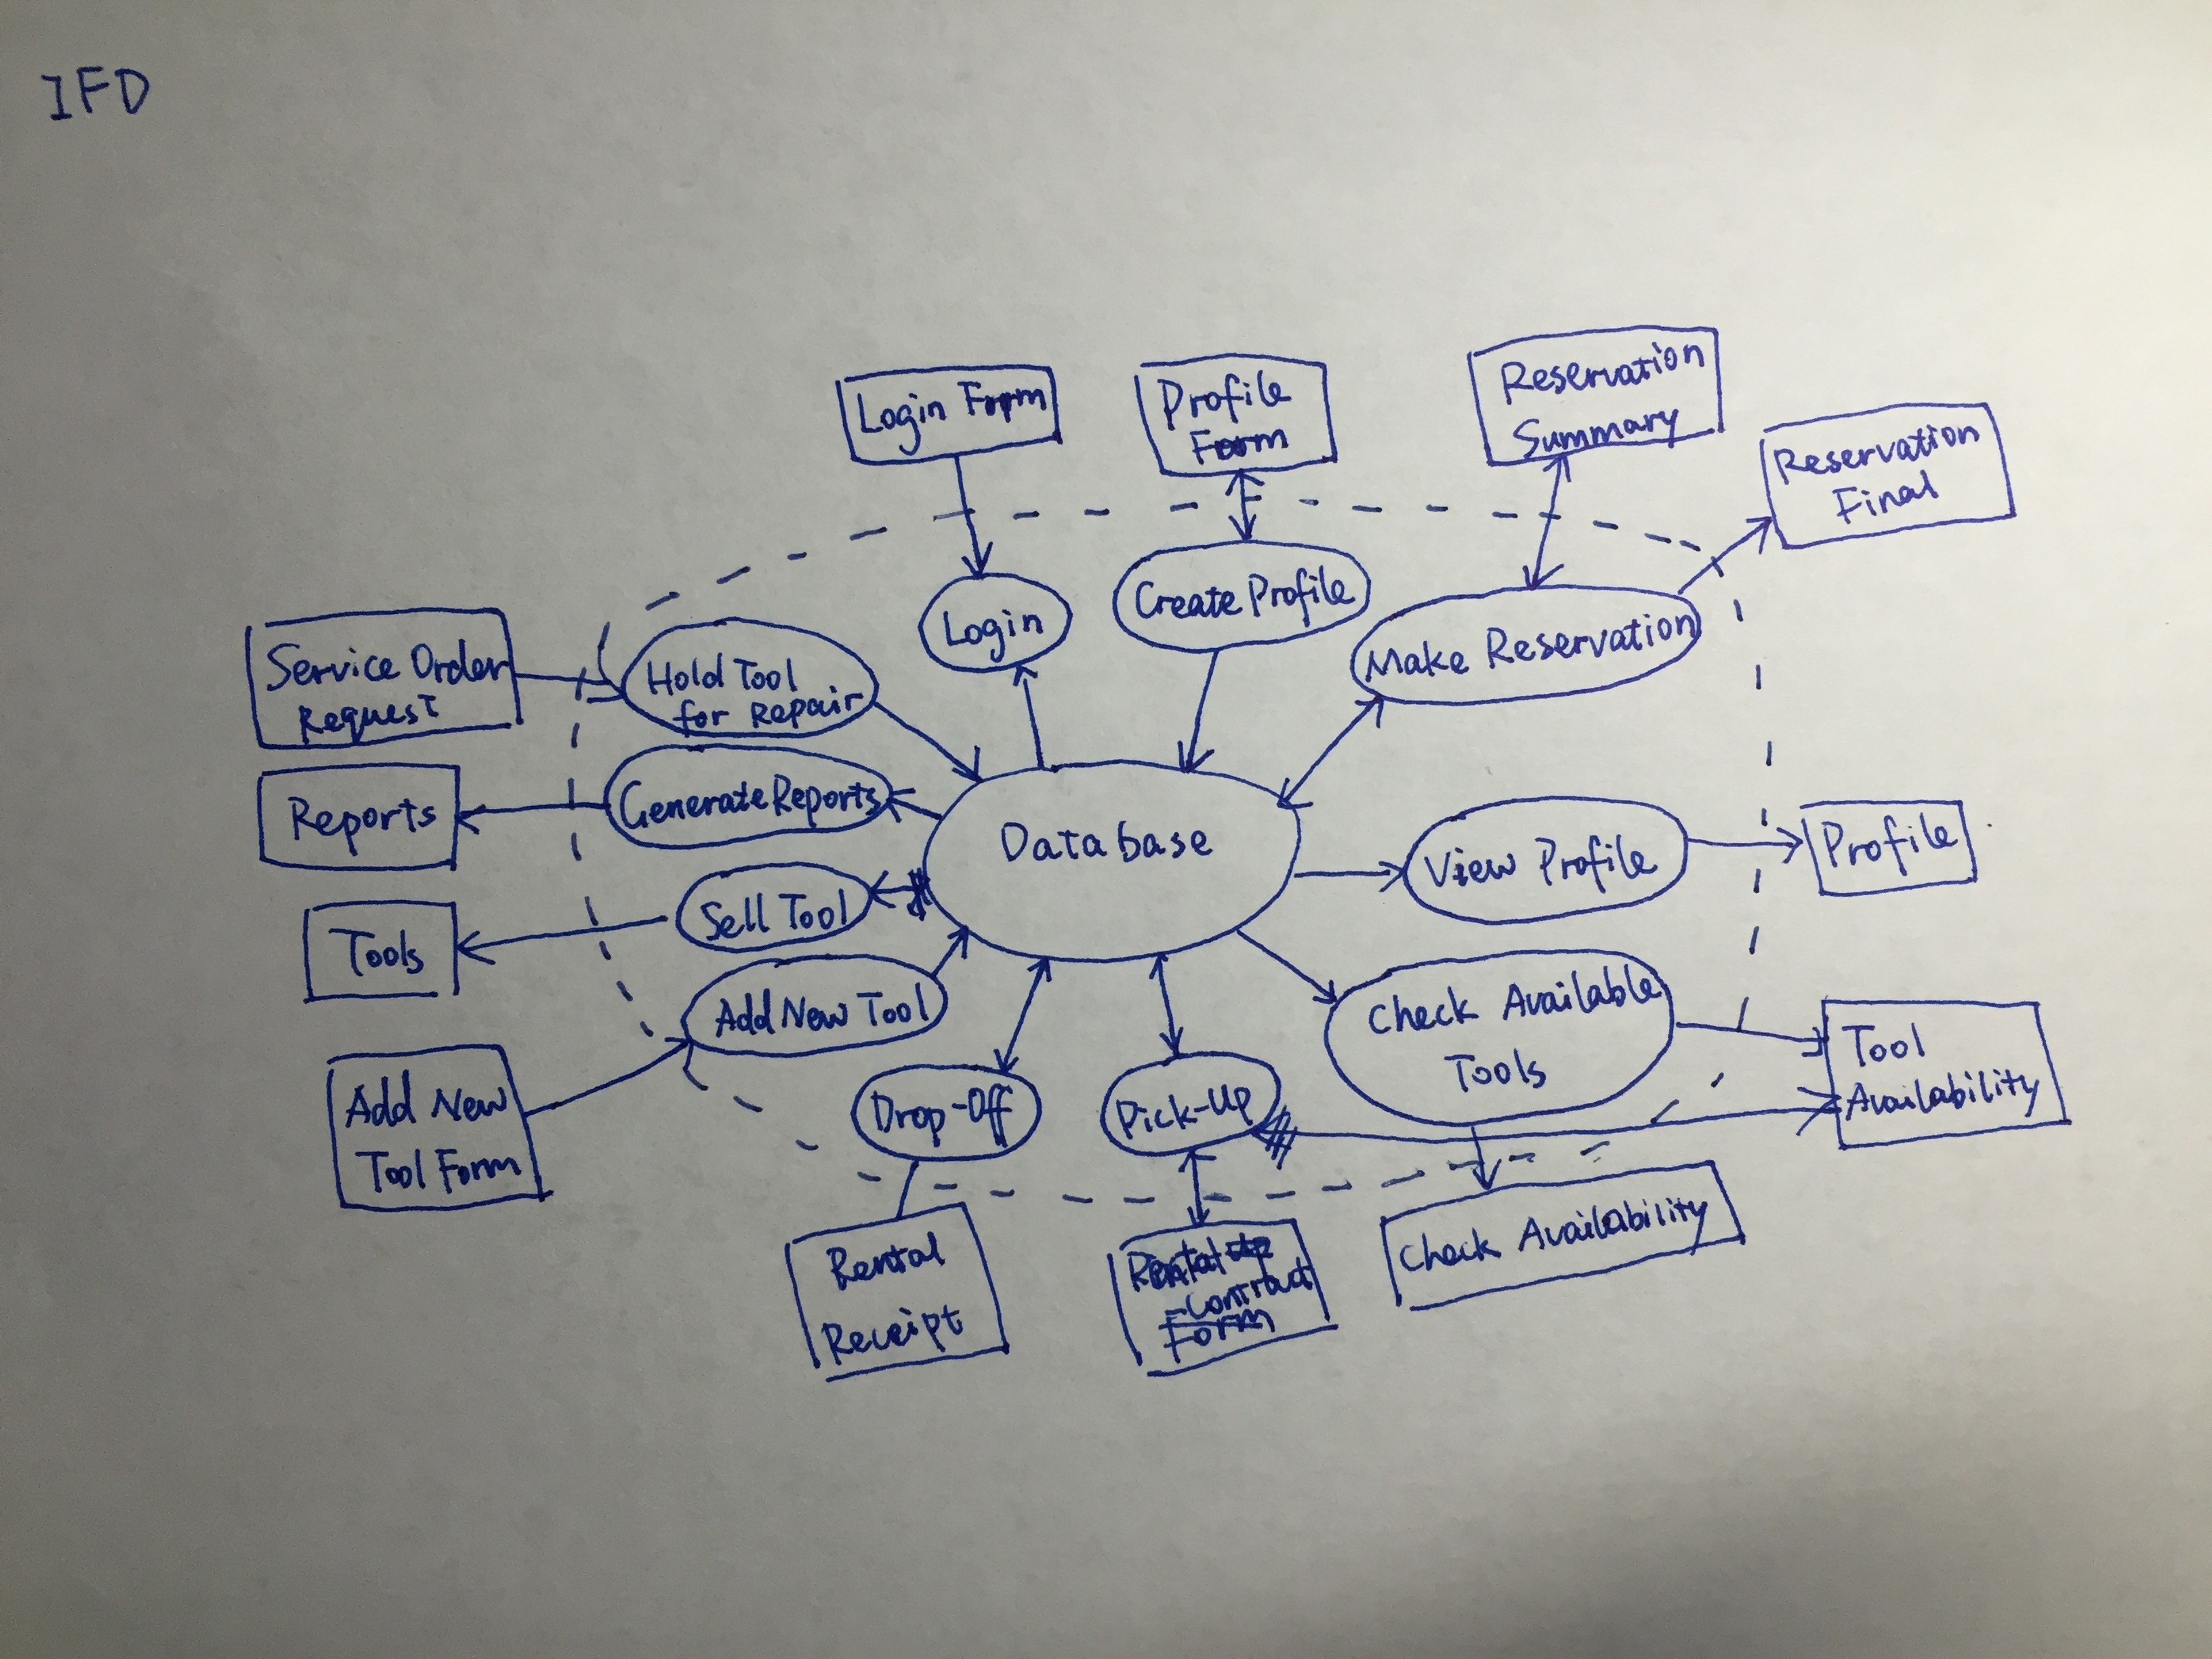 IFD
Login Form
Profile
Form
Reservation
Summary
Reservation
Final
Service Order
Request
Hold Tool
for Repair
Login
Create Profile
Make Reservation
Reports
Generate Reports
Database
View Profile
Profile
Tools
Sell Tool
Add New Tool
Check Available
Tools
Tool
Availability
Add New
Tool Form
Drop-Off
Pick-Up
Rental
Receipt
Rental
Contract
Form
Check Availability